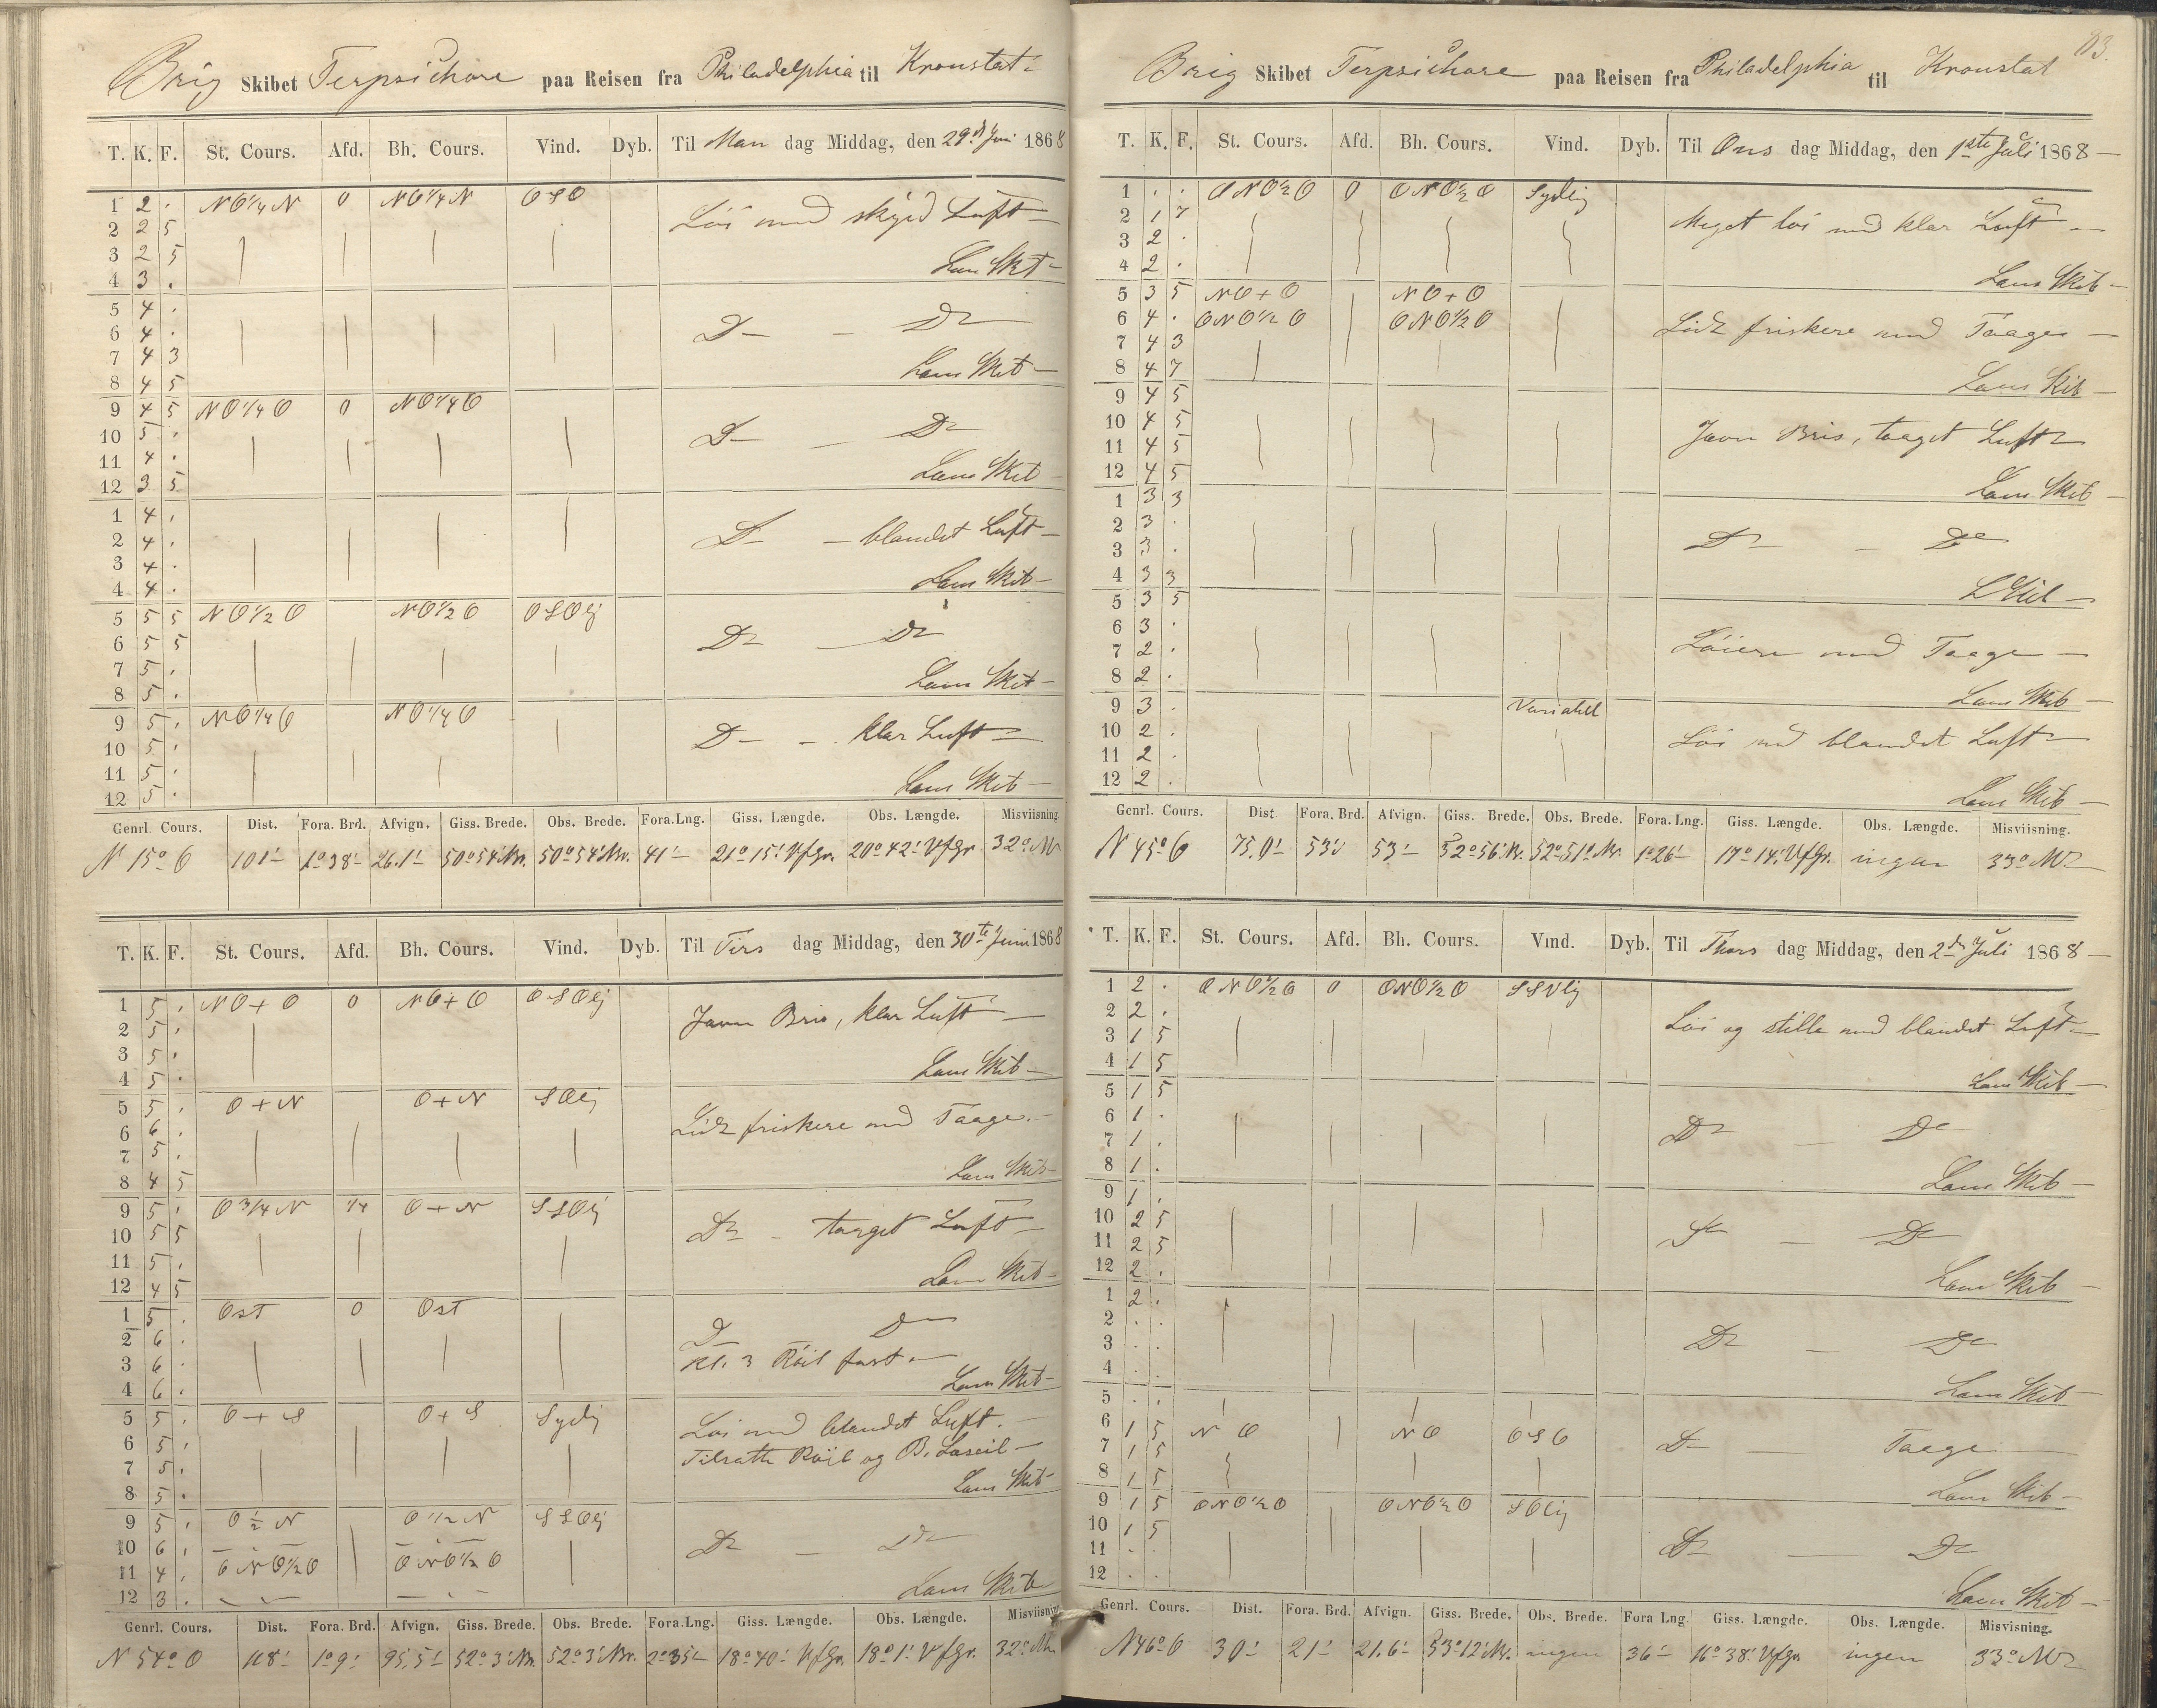 Brig Skibet Terpsichore paa Reisen fra Philadelphia til Kronstat
T. K. F. St. Cours. Afd. Bh. Cours. Vind. Dyb. Til Man dag Middag, den 29de Juni 1868
1 2 . NO1/4N 0 NO1/4N OSO
Löi med skyed Luft
2 2 5
3 2 5
4 3 . Læns Skib
5 4 .
6 4 . D D
7 4 3
8 4 5 Læns Skib
9 4 5 NO1/4O 0 NO1/4O
10 5 . D D
11 4 .
12 3 5 Læns Skib
1 4 .
2 4 . D blandet Luft
3 4 .
4 4 . Læns Skib
5 5 5 NO1/2O NO1/2O OSOlj
6 5 5 D D
7 5 .
8 5 . Læns Skib
9 5 . NO1/4O NO1/4O
10 5 . D klar Luft
11 5 .
12 5 . Læns Skib
Genrl. Cours. Dist. Fora. Brd. Afvign. Giss. Brede. Obs. Brede. Fora. Lng. Giss. Længde. Obs. Længde. Misviisning.
N 15° O 101' 1°38' 26.1' 50°54' Nr. 50°54' Nr. 41' 21°15' VfGr. 20°42' VfGr 32° NV
T. K. F. St. Cours. Afd. Bh. Cours. Vind. Dyb. Til Tirs dag Middag, den 30te Juni 1868
1 5 . NO+O 0 NO+O OSOlj
2 5 . Javn Bris, klar Luft
3 5 .
4 5 . Læns Skib
5 5 . O+N O+N SOlj
6 6 . Lidt friskere med Taage.
7 5 .
8 4 5 Læns Skib
9 5 . O3/4N 1/4 O+N SSOlj
10 5 5 D taaget Luft
11 5 .
12 4 5 Læns Skib
1 5 . Ost 0 Ost
2 6 . D D
3 6 . Kl. 3 Röil fast
4 6 . Læns Skib
5 5 . O+S O+S Sydlj
Löi med blandet Luft.
6 5 . Tilsatte Röil og B. Læseil
7 5 .
8 5 . Læns Skib
9 5 . O1/2N O1/2N SSOlj
10 6 . D D
11 4 . ONO1/2O ONO1/2O
12 3 . Læns Skib
Genrl. Cours. Dist. Fora. Brd. Afvign. Giss. Brede. Obs. Brede. Fora. Lng. Giss. Længde. Obs. Længde. Misviisning
N 54° O 118' 1°9' 95.5' 52°3' Nr. 52°3' Nr. 2°35' 18°40' VfGr. 18°1' VfGr. 32° NV
83.
Brig Skibet Terpsichore paa Reisen fra Philadelphia til Kronstat
T. K. F. St. Cours. Afd. Bh. Cours. Vind. Dyb. Til Ons dag Middag, den 1ste Juli 1868
1 . . ONO1/2O 0 ONO1/2O Sydlig
2 1 7 Meget löi med klar Luft
3 2 .
4 2 . Læns Skib
5 3 5 NO+O NO+O
6 4 . ONO1/2O ONO1/2O Lidt friskere med Taage
7 4 3
8 4 7 Læns Skib
9 4 5
10 4 5 Javn Bris, taaget Luft
11 4 5
12 4 5 Læns Skib
1 3 3
2 3 .
3 3 . D D
4 3 3 L Skib
5 3 5
6 3 .
7 2 . Löiere med Taage
8 2 .
9 3 . Variabel Læns Skib
10 2 . Löi med blandet Luft
11 2 .
12 2 . Læns Skib
Genrl. Cours. Dist. Fora. Brd. Afvign. Giss. Brede. Obs. Brede. Fora. Lng. Giss. Længde. Obs. Længde. Misviisning.
N 45° O 75.0' 53' 53' 52°56' Nr. 52°51' Nr. 1°26' 17°14' VfGr. ingen 33° NV
T. K. F. St. Cours. Afd. Bh. Cours. Vind. Dyb. Til Thors dag Middag, den 2den Juli 1868
1 2 . ONO1/2O 0 ONO1/2O SSVlig
2 2 . Löi og stille med blandet Luft
3 1 5
4 1 5 Læns Skib
5 1 5
6 1 . D D
7 1 .
8 1 . Læns Skib
9 1 .
10 2 5 D D
11 2 5
12 2 . Læns Skib
1 2 .
2 . .
3 . . D D
4 . . Læns Skib
5 . .
6 1 5 NO NO OSO
7 1 5 D Taage
8 1 5 Læns Skib
9 1 5 ONO1/2O ONO1/2O SOlig
10 1 5
11 . . D D
12 . . Læns Skib
Genrl. Cours. Dist. Fora. Brd. Afvign. Giss. Brede. Obs. Brede. Fora Lng Giss. Længde. Obs. Længde. Misvisning.
N 46° O 30' 21' 21.6' 53°12' Nr. ingen 36' 16°38' VfGr. ingen 33° NV